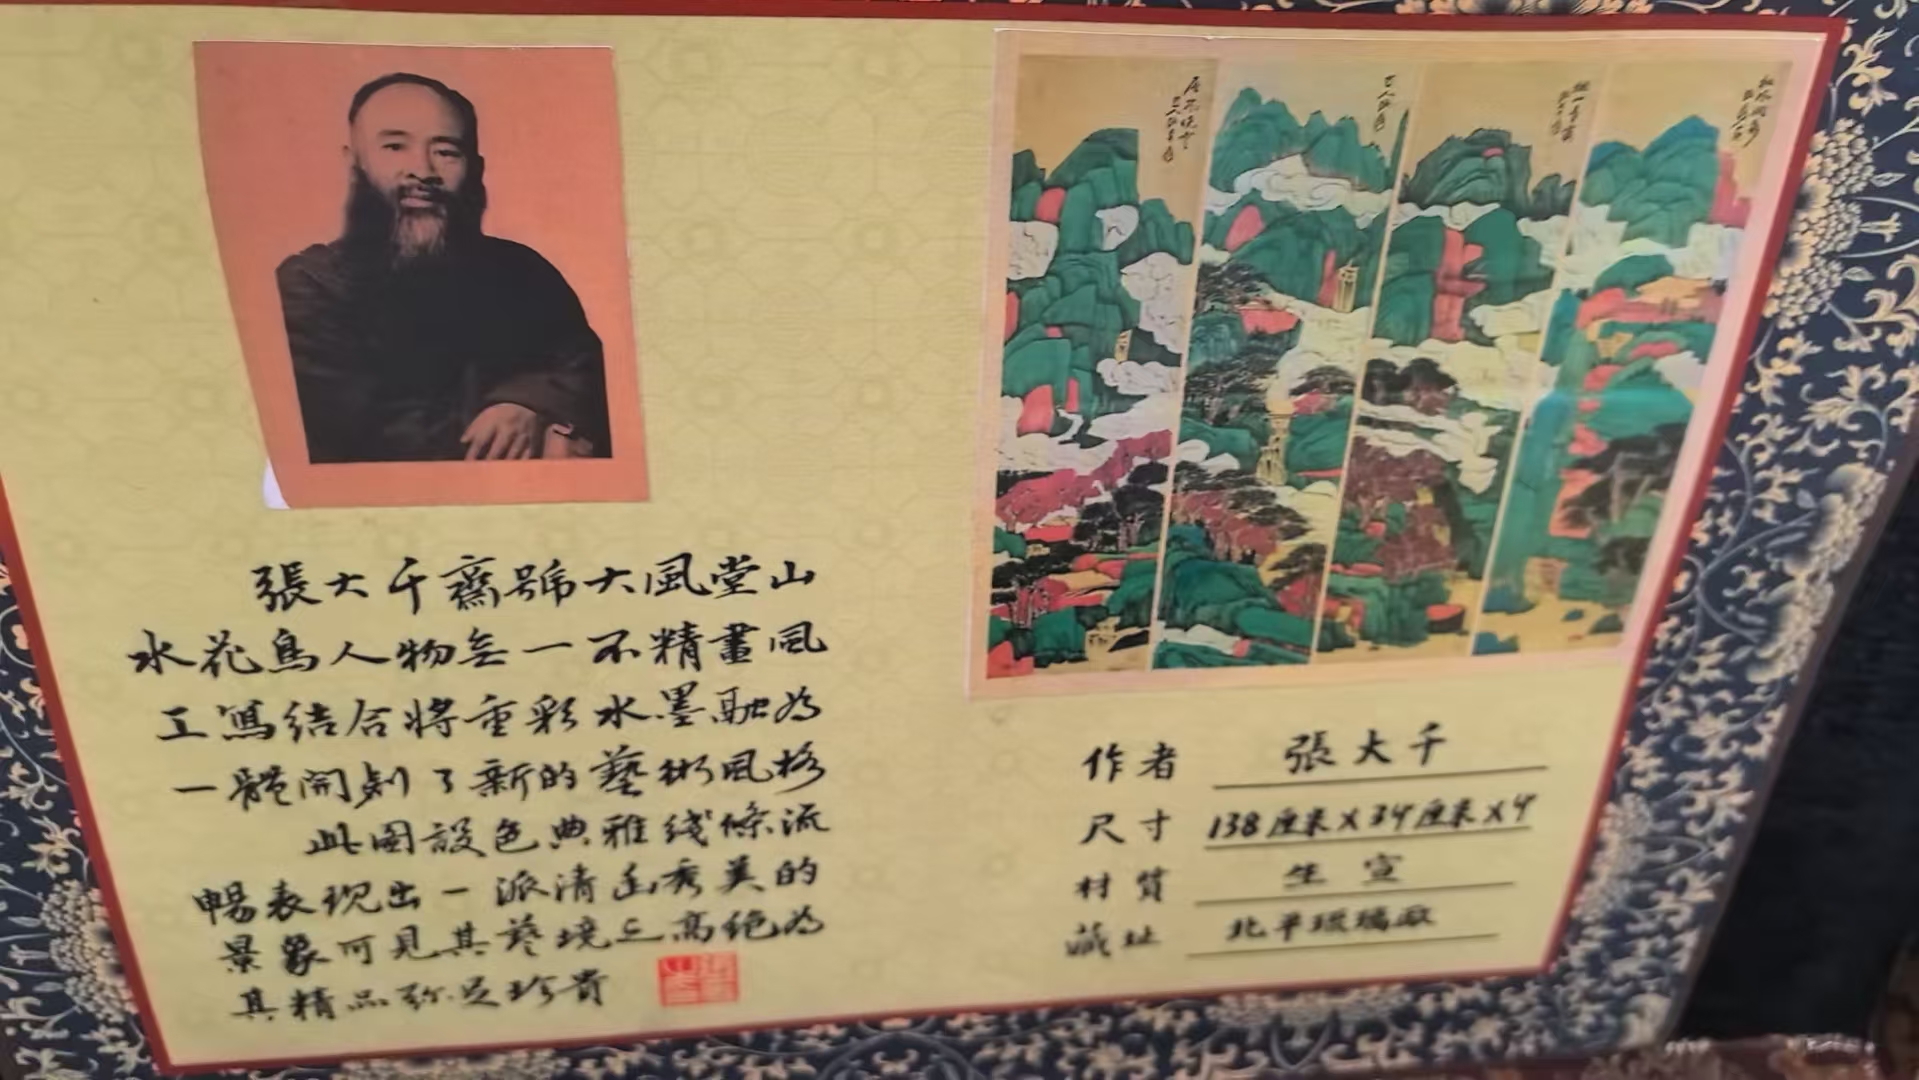 張大千齋號大風堂山
水花鳥人物無一不精畫風
工寫結合將重彩水墨融為
一體開創了新的藝術風格
此圖設色典雅线條流
暢表现出一派清幽秀美的
景象可見其藝境之高絕為
其精品弥足珍貴
作者 張大千
尺寸 138厘米X34厘米X4
材質 生宣
藏址 北平琉璃廠